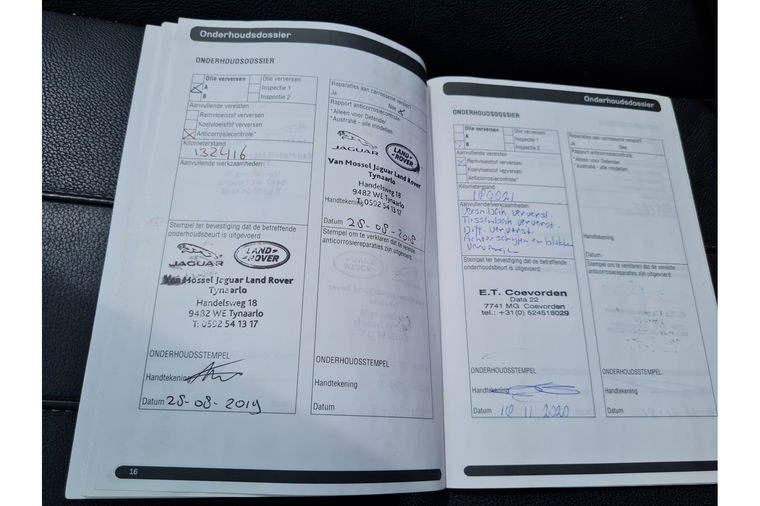 Onderhoudsdossier
ONDERHOUDSDOSSIER
Olie verversen
A
B
Olie verversen
Inspectie 1
Inspectie 2
Aanvullende vereisten
Remvloeistof verversen
Koelvloeistof verversen
Anticorrosiecontrole*
Kilometerstand
132416
Aanvullende werkzaamheden:
Stempel ter bevestiging dat de betreffende
onderhoudsbeurt is uitgevoerd
JAGUAR
LAND ROVER
Van Mossel Jaguar Land Rover
Tynaarlo
Handelsweg 18
9482 WE Tynaarlo
T: 0592 54 13 17
ONDERHOUDSSTEMPEL
Handtekening
Datum 28-08-2019
Reparaties aan carrosserie vereist?
Ja
Nee
Rapport anticorrosiecontrole:
*Alleen voor Defender
*Australië - alle modellen
JAGUAR
LAND ROVER
Van Mossel Jaguar Land Rover
Tynaarlo
Handelsweg 18
9482 WE Tynaarlo
T: 0592 54 13 17
Handtekening
Datum 28-08-2019
Stempel om te verklaren dat de vereiste
anticorrosiereparaties zijn uitgevoerd.
ONDERHOUDSSTEMPEL
Handtekening
Datum
16
Onderhoudsdossier
ONDERHOUDSDOSSIER
Olie verversen
A
B
Olie verversen
Inspectie 1
Inspectie 2
Aanvullende vereisten
Remvloeistof verversen
Koelvloeistof verversen
Anticorrosiecontrole*
Kilometerstand
Aanvullende werkzaamheden:
ververst.
ververst.
Diff. ververst.
Achterschijven en blokken
Stempel ter bevestiging dat de betreffende
onderhoudsbeurt is uitgevoerd
E.T. Coevorden
Data 22
7741 MG Coevorden
tel.: +31(0) 524518029
ONDERHOUDSSTEMPEL
Handtekening
Datum 18 11 2020
Reparaties aan carrosserie vereist?
Ja
Rapport anticorrosiecontrole:
*Alleen voor Defender
*Australië - alle modellen
Handtekening
Datum
Stempel om te verklaren dat de vereiste
anticorrosiereparaties zijn uitgevoerd.
ONDERHOUDSSTEMPEL
Handtekening
Datum